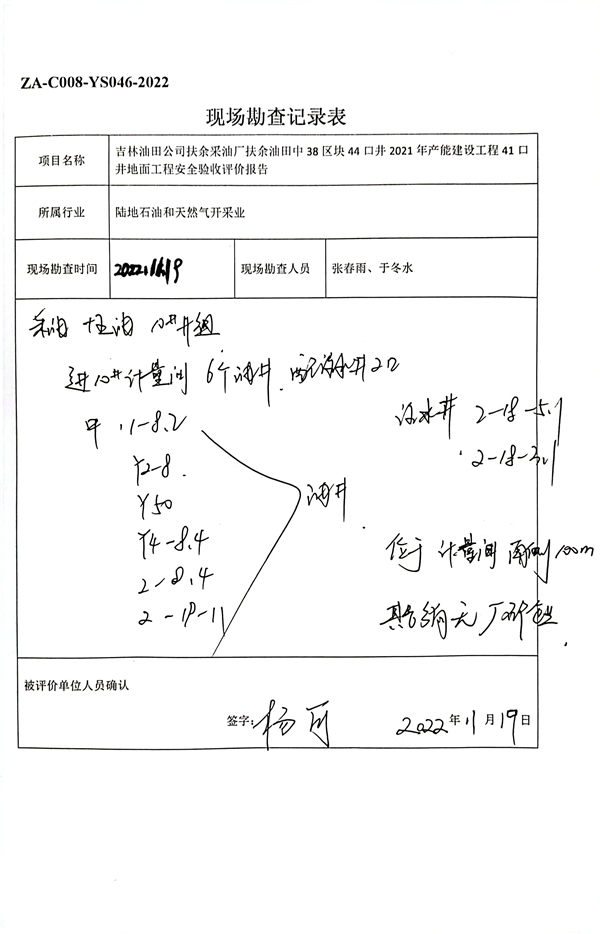 ZA-C008-YS046-2022
现场勘查记录表
项目名称
吉林油田公司扶余采油厂扶余油田中 38 区块 44 口井 2021 年产能建设工程 41 口
井地面工程安全验收评价报告
所属行业
陆地石油和天然气开采业
现场勘查时间
2022.11.19
现场勘查人员
张春雨、于冬水
采油
井组
进 计量间 6个油井 水井2口
中 11-8.2
Y2-8
Y50
Y4-8.4
2-8.4
2-18-11
油井
注水井 2-18-5.1
2-18-3.1
位于 计量间 西侧 100m
无
被评价单位人员确认
签字:
2022 年 11 月 19 日